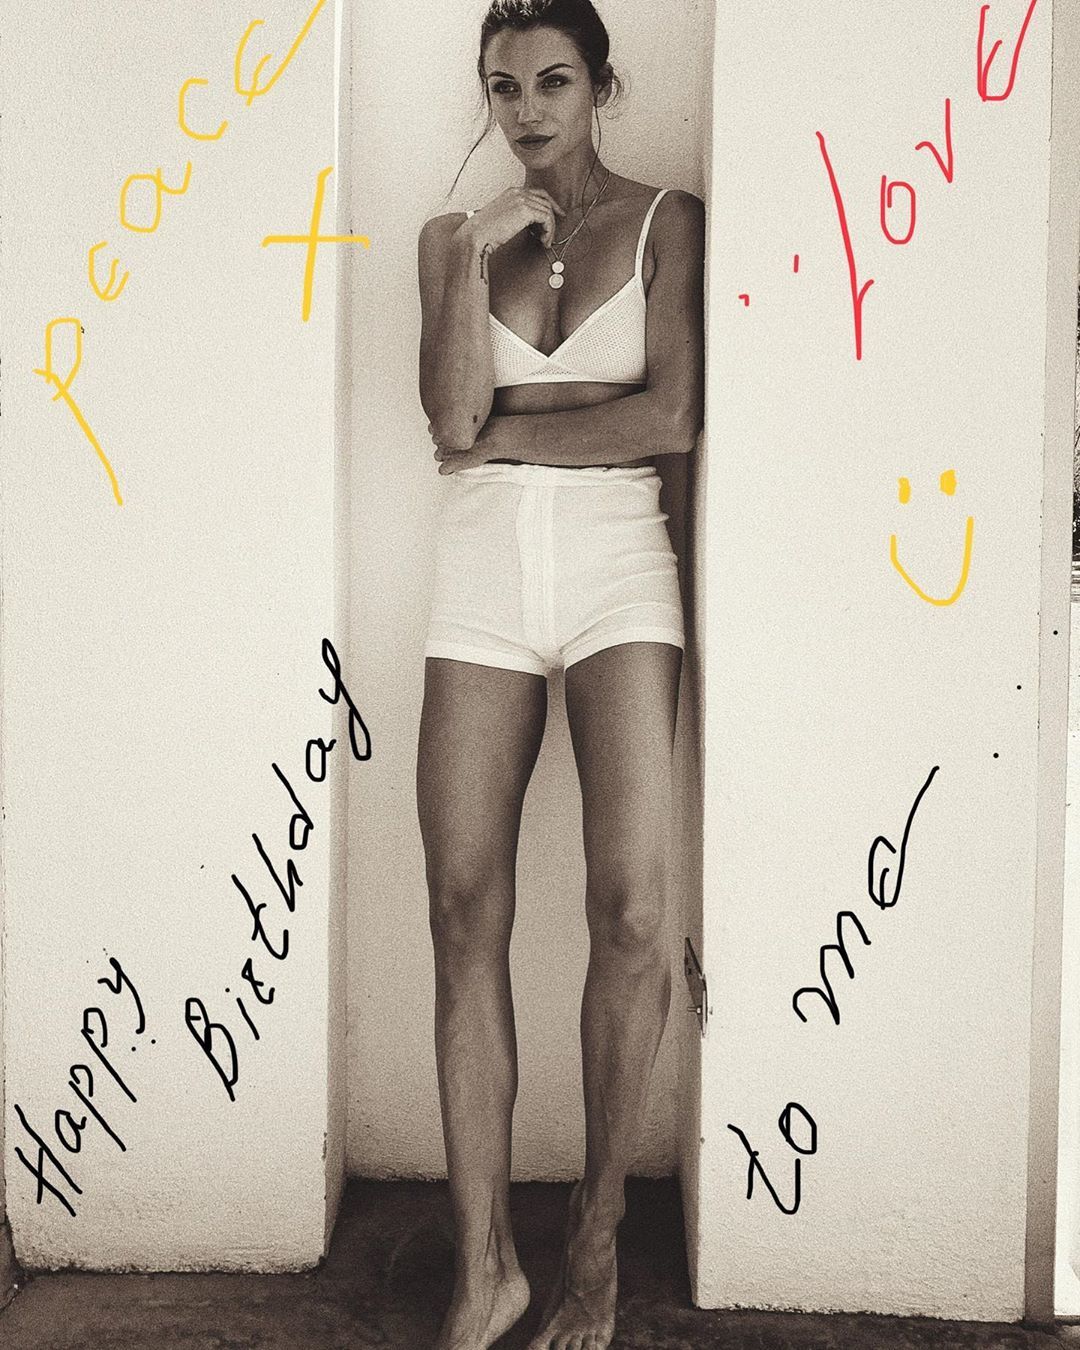 peace
+
love
Happy
Birthday
to me